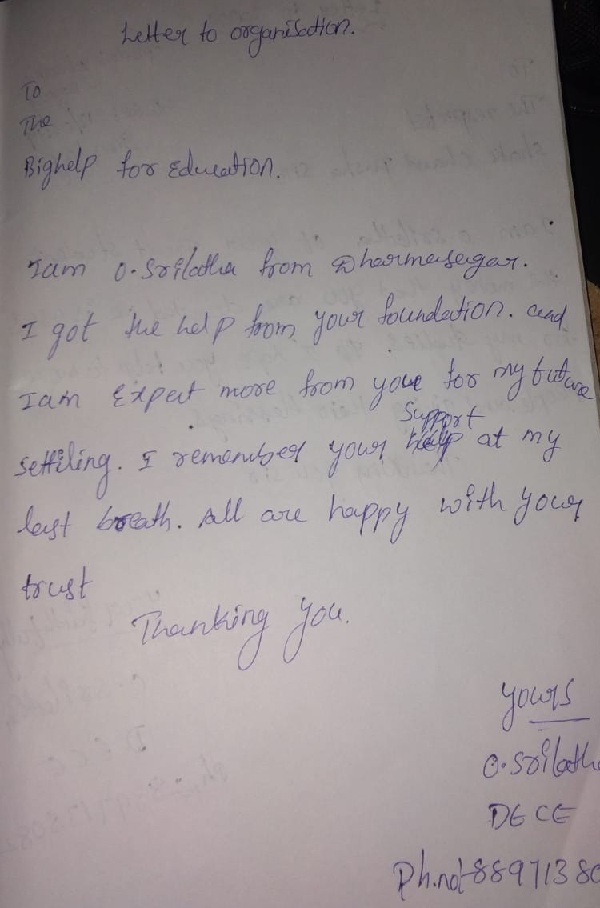 Letter to organisation.
To
The
Bighelp for Education.
Iam O. Srilatha from Dharmasagar.
I got the help from your foundation. and
Iam Expect more from you for my future
Support
settiling. I remember your help at my
last breath. All are happy with your
trust
Thanking you.
yours
O. Srilatha
DECE
Ph.no:-8897138